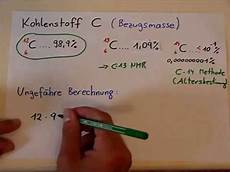 Kohlenstoff C (Bezugsmasse)
12 6 C .... 98,9% 13 6 C .... 1,09% 14 6 C < 10
0,0000000001%
→ C-13 NMR C-14 Methode
(Altersbestimmung)
Ungefähre Berechnung:
12 · 9